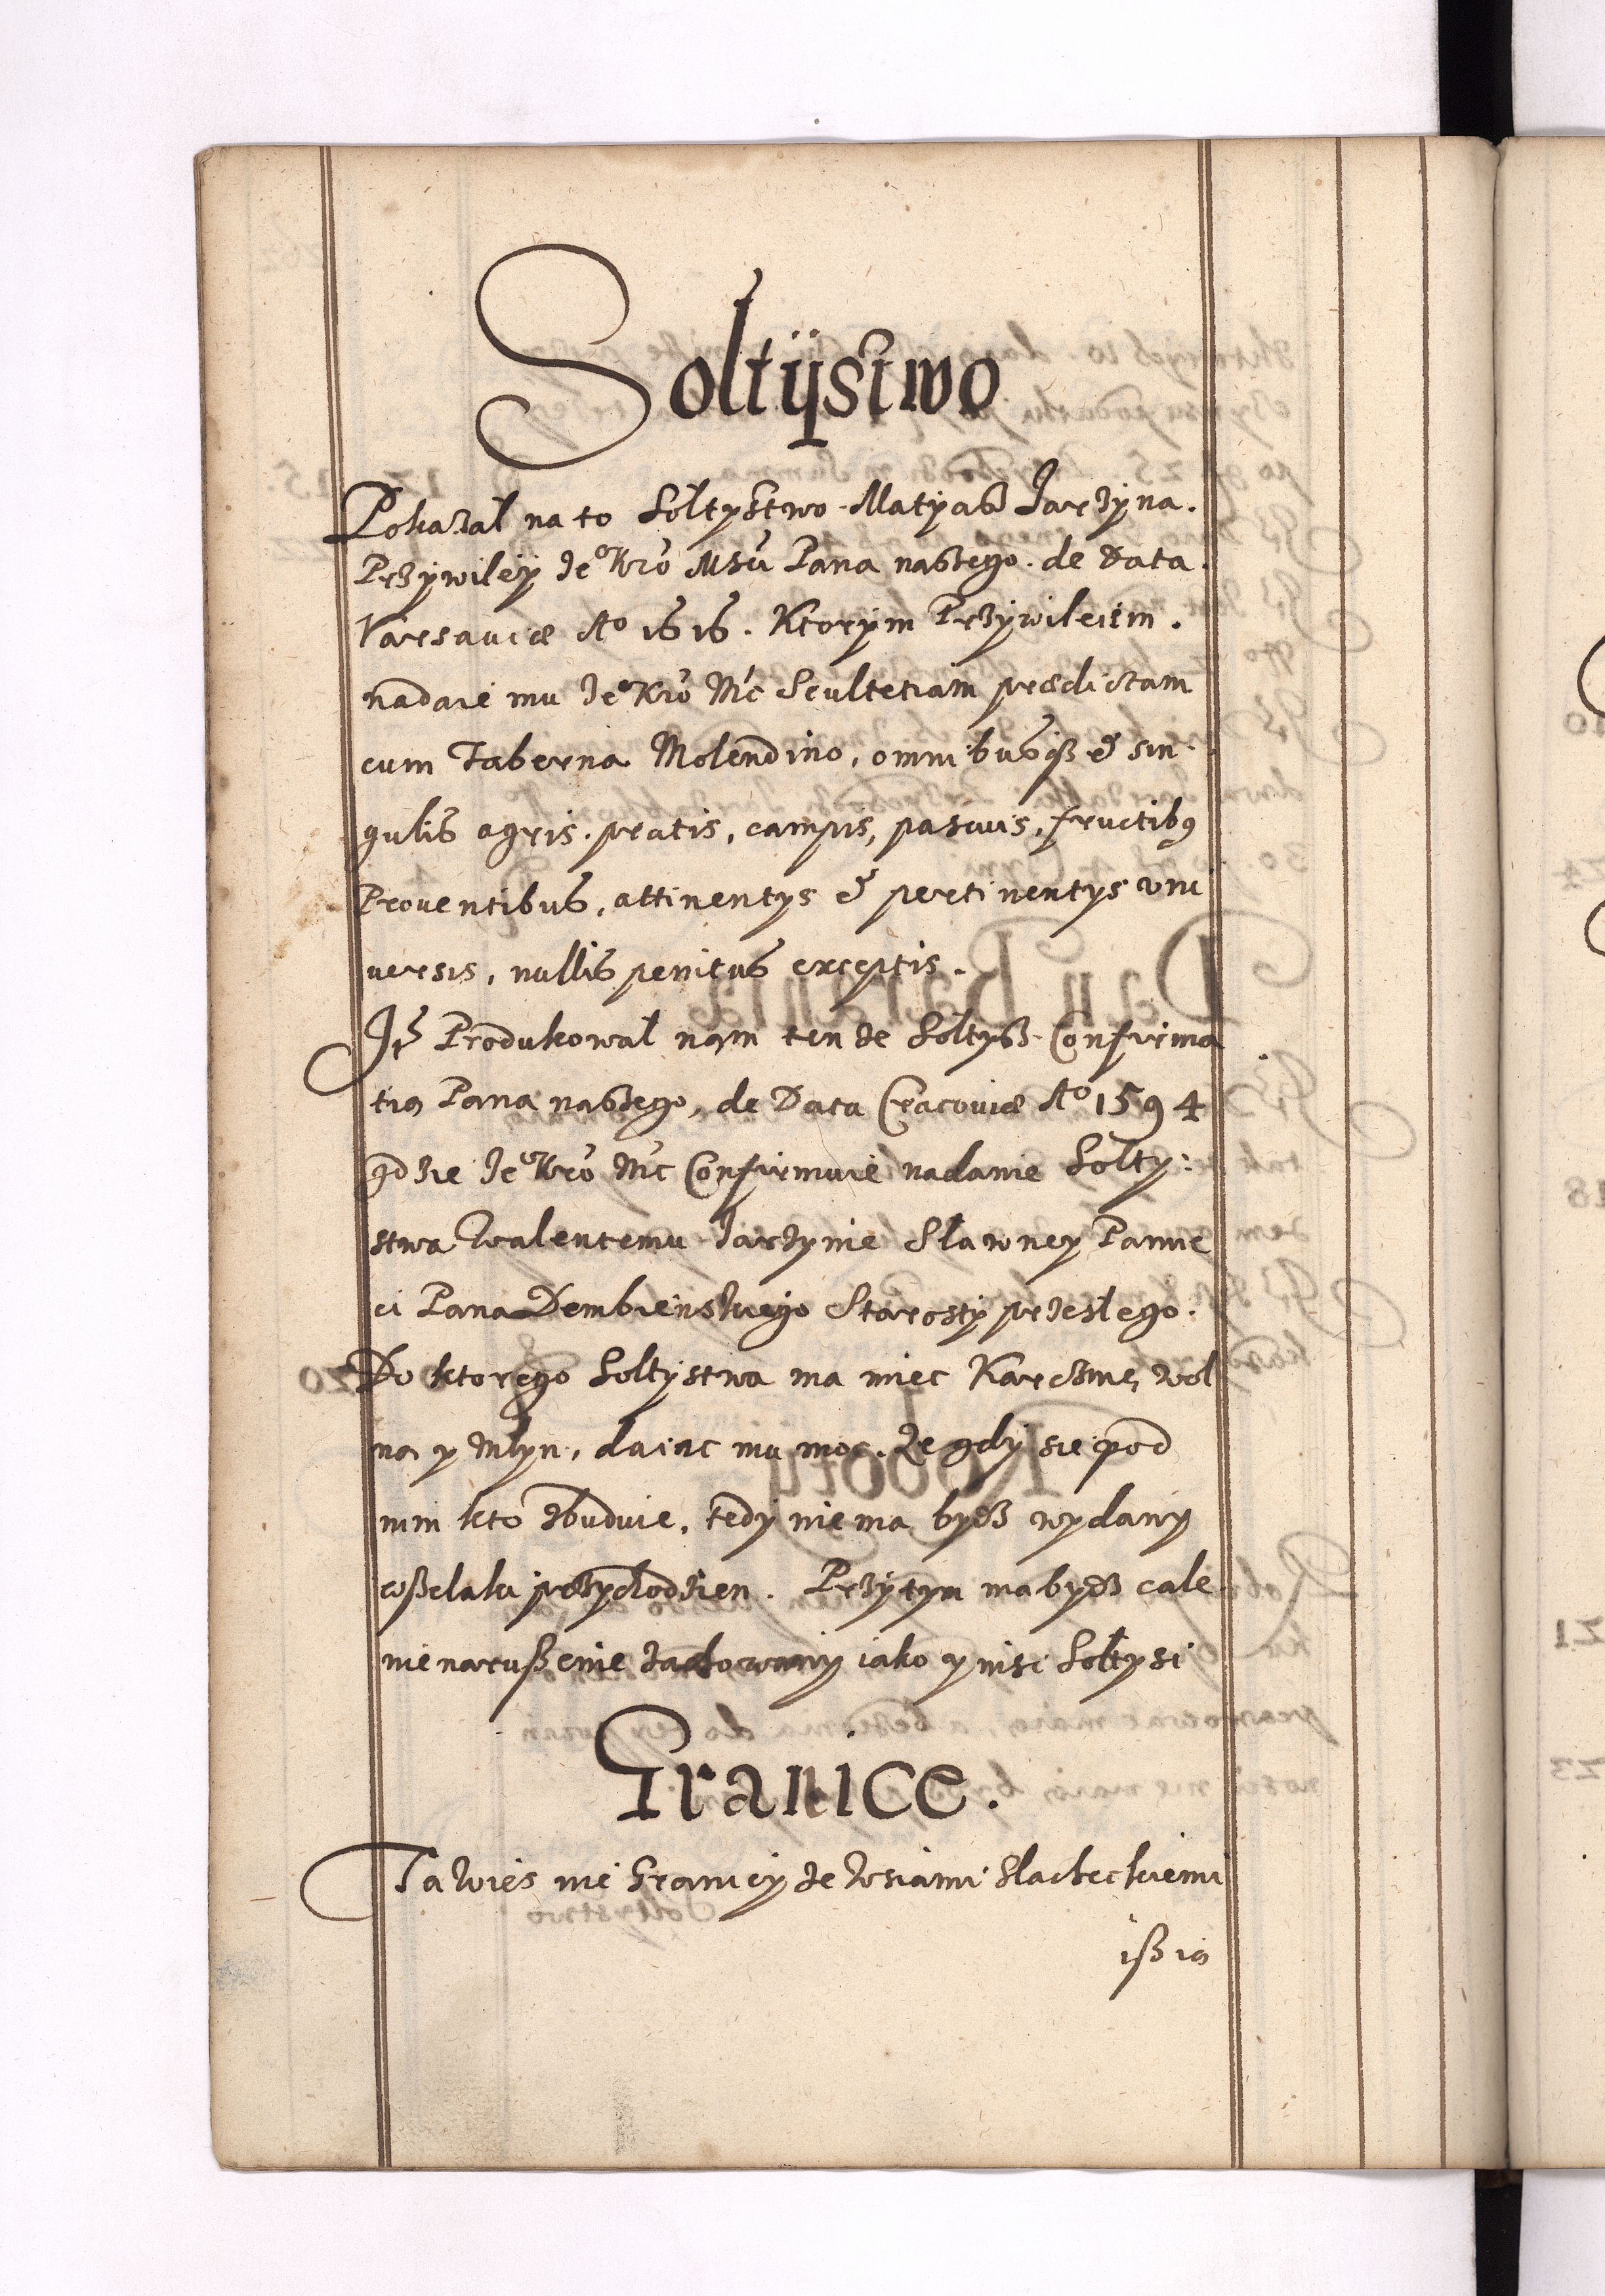 Soltÿstwo
Pokazal na to Soltystwo Matyasz Jarzyna.
Przywiley Je° Kró Msci Pana naszego. de Data.
Varsauiæ A° 1616. Ktorym Przywileiem.
nadaie mu Je° Kró Mć Scultetiam prædictam
cum Taberna Molendino, omnibusqß & sin-
gulis agris, pratis, campis, pascuis, fructibq
Prouentibus, attinentys & pertinentys vni
uersis, nullis penitus exceptis.
It Produkowal nam ten ze Soltysz Confirma
tią Pana naszego, de Data Cracouiæ A° 1594
gdzie Je° Kró Mć Confirmuie nadanie Solty:
stwa Walentemu Jarzynie Slawney Pamie
ci Pana Dembienskiego Starosty przeslego.
Do ktorego Soltystwa ma miec Karczmę, wol
ną y Mlyn, daiąc mu moc. Ze gdy sie pod
nim kto zbuduie, tedy nie ma bydz wydany
wßelaki przychodzien. Przytym ma bydz cale
nienarußenie zachowany iako y insi Soltysi
Granice.
Ta wies nie Graniczy ze wsiami Slacheckiemi
iß ią